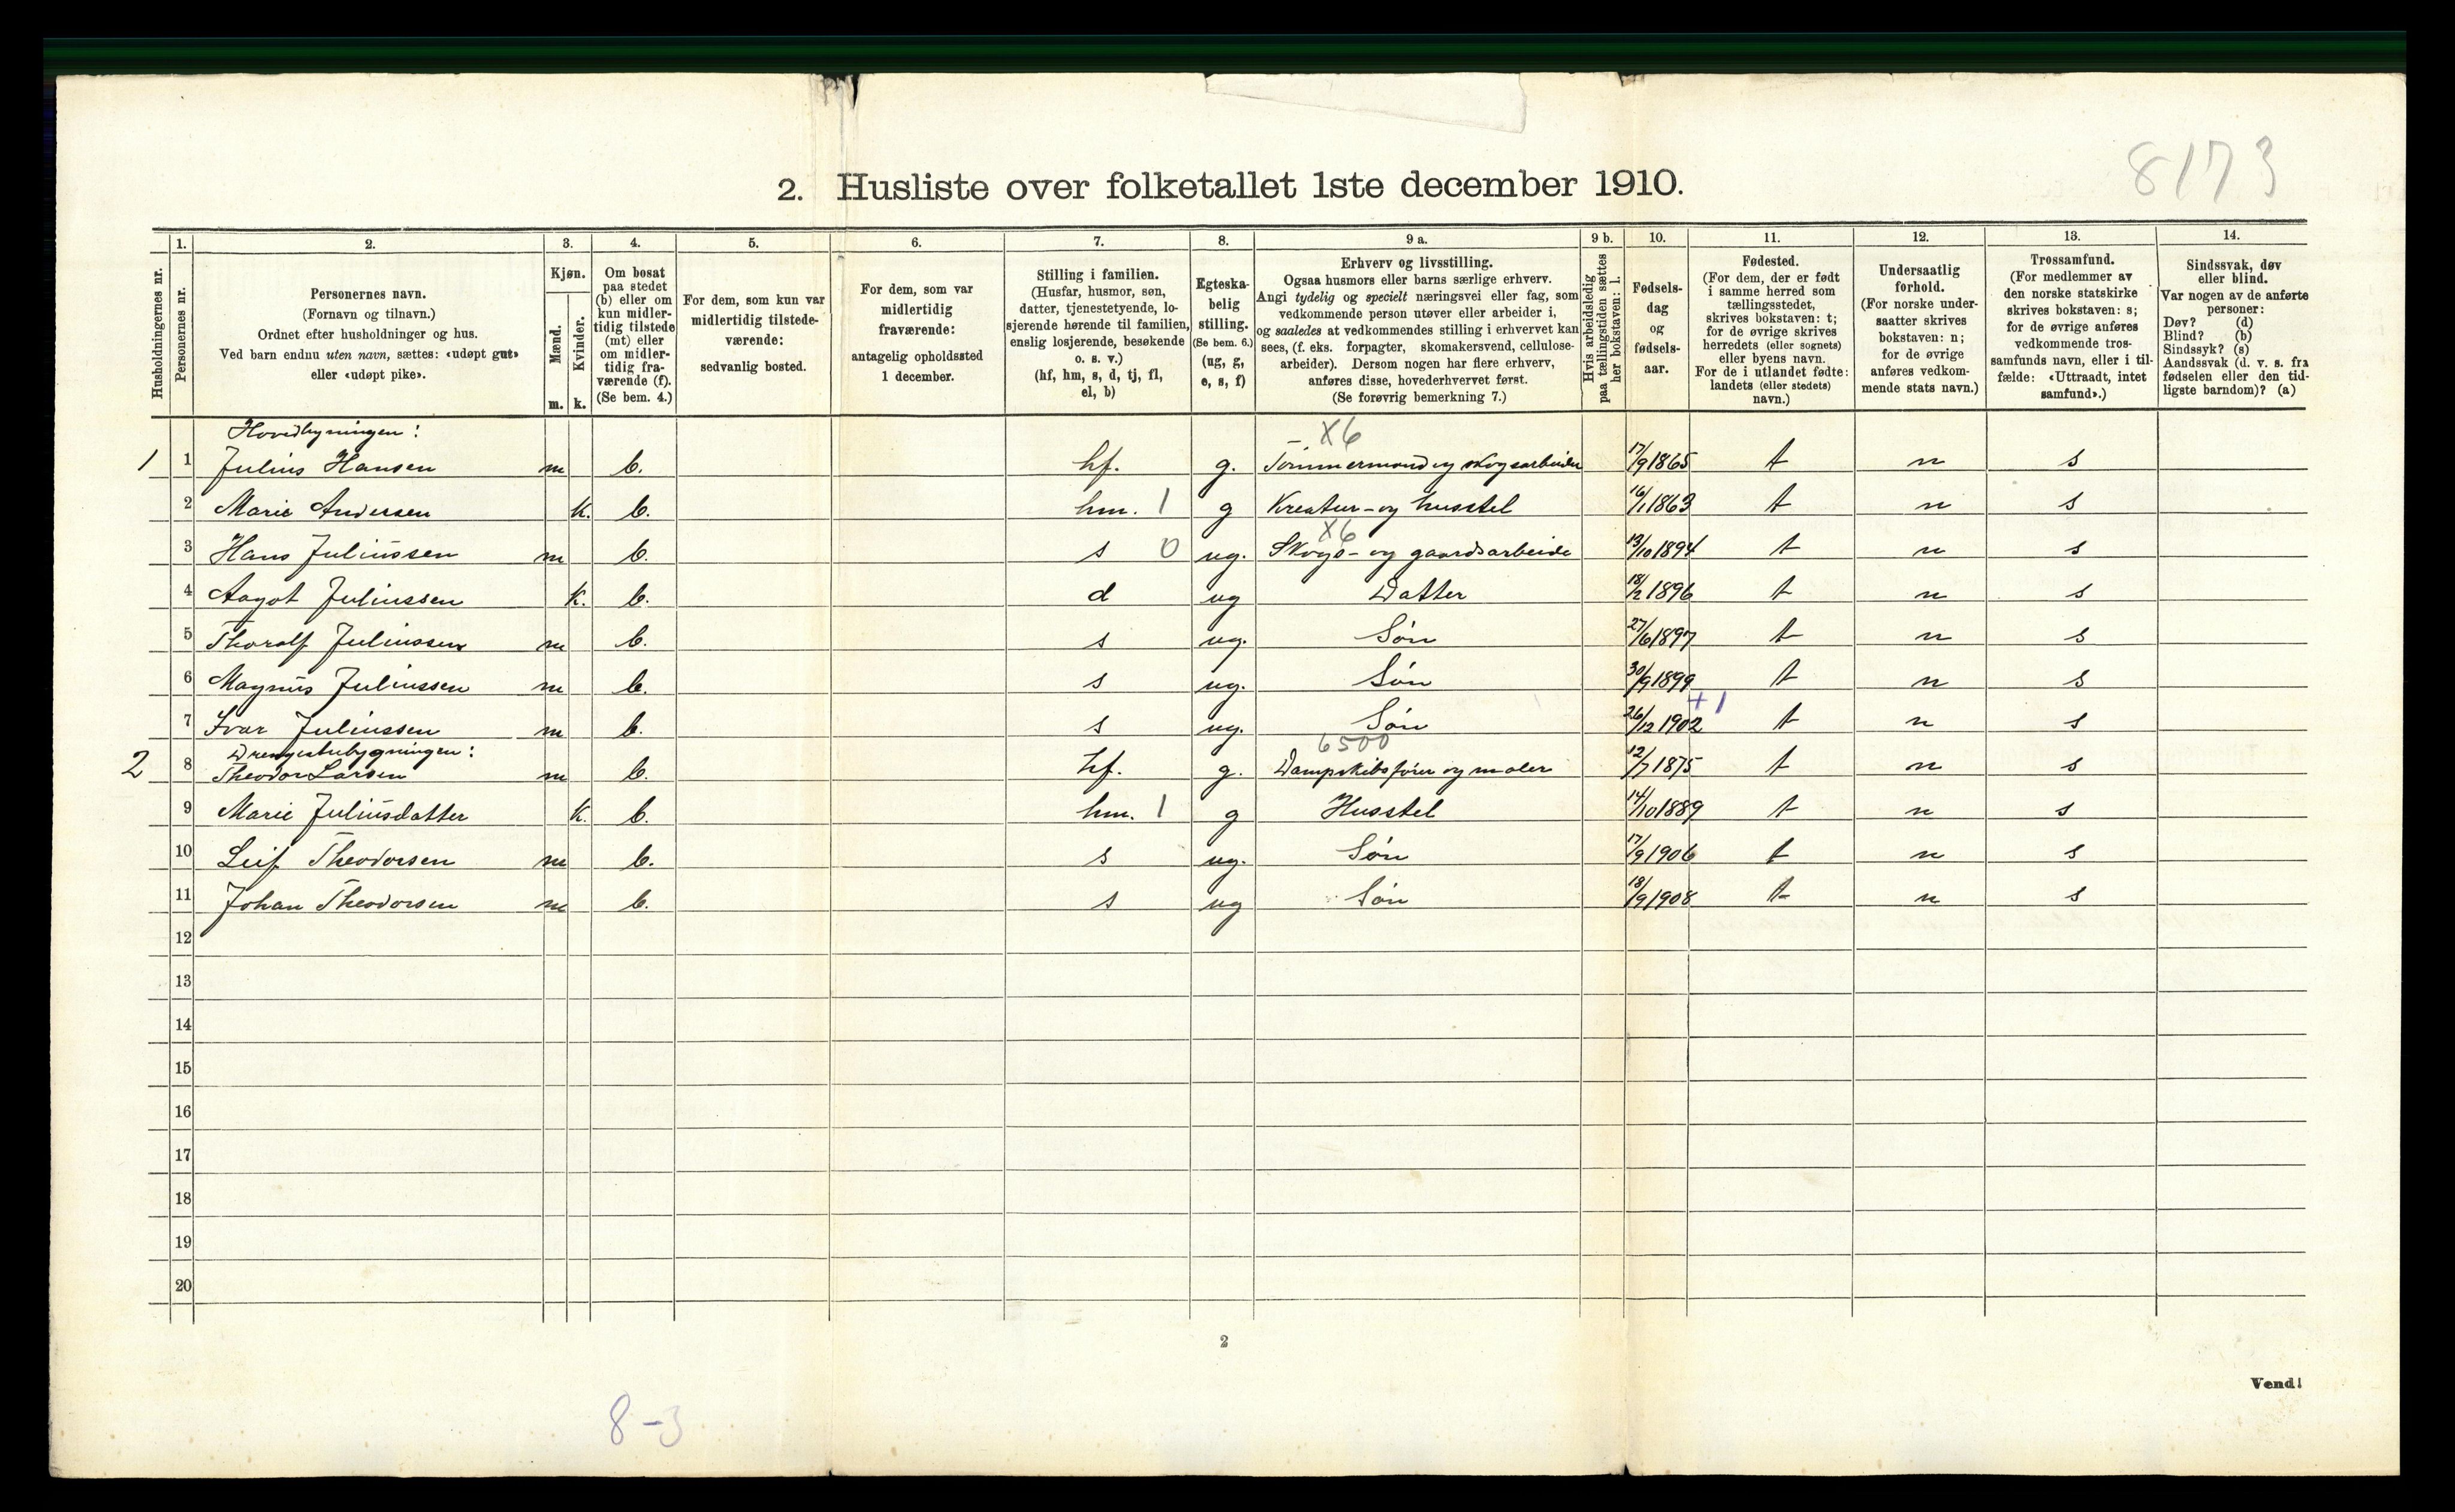 8173
2. Husliste over folketallet 1ste december 1910.
Husholdningernes nr.
1.
Personernes nr.
2.
Personernes navn.
(Fornavn og tilnavn.)
Ordnet efter husholdninger og hus.
Ved barn endnu uten navn, sættes: «udøpt gut»
eller «udøpt pike».
3.
Kjøn.
Mænd.
Kvinder.
m. k.
4.
Om bosat
paa stedet
(b) eller om
kun midler-
tidig tilstede
(mt) eller
om midler-
tidig fra-
værende (f).
(Se bem. 4.)
5.
For dem, som kun var
midlertidig tilstede-
værende:
sedvanlig bosted.
6.
For dem, som var
midlertidig
fraværende:
antagelig opholdssted
1 december.
7.
Stilling i familien.
(Husfar, husmor, søn,
datter, tjenestetyende, lo-
sjerende hørende til familien,
enslig losjerende, besøkende
o. s. v.)
(hf, hm, s, d, tj, fl,
el, b)
8.
Egteska-
belig
stilling.
(Se bem. 6.)
(ug, g,
e, s, f)
9 a.
Erhverv og livsstilling.
Ogsaa husmors eller barns særlige erhverv.
Angi tydelig og specielt næringsvei eller fag, som
vedkommende person utøver eller arbeider i,
og saaledes at vedkommendes stilling i erhvervet kan
sees, (f. eks. forpagter, skomakersvend, cellulose-
arbeider). Dersom nogen har flere erhverv,
anføres disse, hovederhvervet først.
(Se forøvrig bemerkning 7.)
9 b.
Hvis arbeidsledig
paa tællingstiden sættes
her bokstaven: l.
10.
Fødsels-
dag
og
fødsels-
aar.
11.
Fødested.
(For dem, der er født
i samme herred som
tællingsstedet,
skrives bokstaven: t;
for de øvrige skrives
herredets (eller sognets)
eller byens navn.
For de i utlandet fødte:
landets (eller stedets)
navn.)
12.
Undersaatlig
forhold.
(For norske under-
saatter skrives
bokstaven: n;
for de øvrige
anføres vedkom-
mende stats navn.)
13.
Trossamfund.
(For medlemmer av
den norske statskirke
skrives bokstaven: s;
for de øvrige anføres
vedkommende tros-
samfunds navn, eller i til-
fælde: «Uttraadt, intet
samfund».)
14.
Sindssvak, døv
eller blind.
Var nogen av de anførte
personer:
Døv? (d)
Blind? (b)
Sindssyk? (s)
Aandssvak (d. v. s. fra
fødselen eller den tid-
ligste barndom)? (a)
Hovedbygningen: X6
1 1 Julius Hansen m b. hf. g. Tømmermand og skogsarbeider 17/9 1865 t n s
2 Marie Andersen k. b. hm. 1 g Kreatur- og husstel 16/1 1863 t n s
X6
3 Hans Juliussen m b. s 0 ug. Skogs- og gaardsarbeide 13/10 1894 t n s
4 Aagot Juliussen k. b. d ug Datter 18/2 1896 t n s
5 Thoralf Juliussen m b. s ug. Søn 27/6 1897 t n s
6 Magnus Juliussen m b. s ug. Søn 30/9 1899 t n s
+1
7 Ivar Juliussen m b. s ug. Søn 26/12 1902 t n s
Drengestubygningen: 6500
2 8 Theodor Larsen m b. hf. g. Dampskibsfører og maler 12/7 1875 t n s
9 Marie Juliusdatter k. b. hm. 1 g Husstel 14/10 1889 t n s
10 Leif Theodorsen m b. s ug. Søn 17/9 1906 t n s
11 Johan Theodorsen m b. s ug Søn 18/9 1908 t n s
12
13
14
15
16
17
18
19
20
2
Vend!
8-3